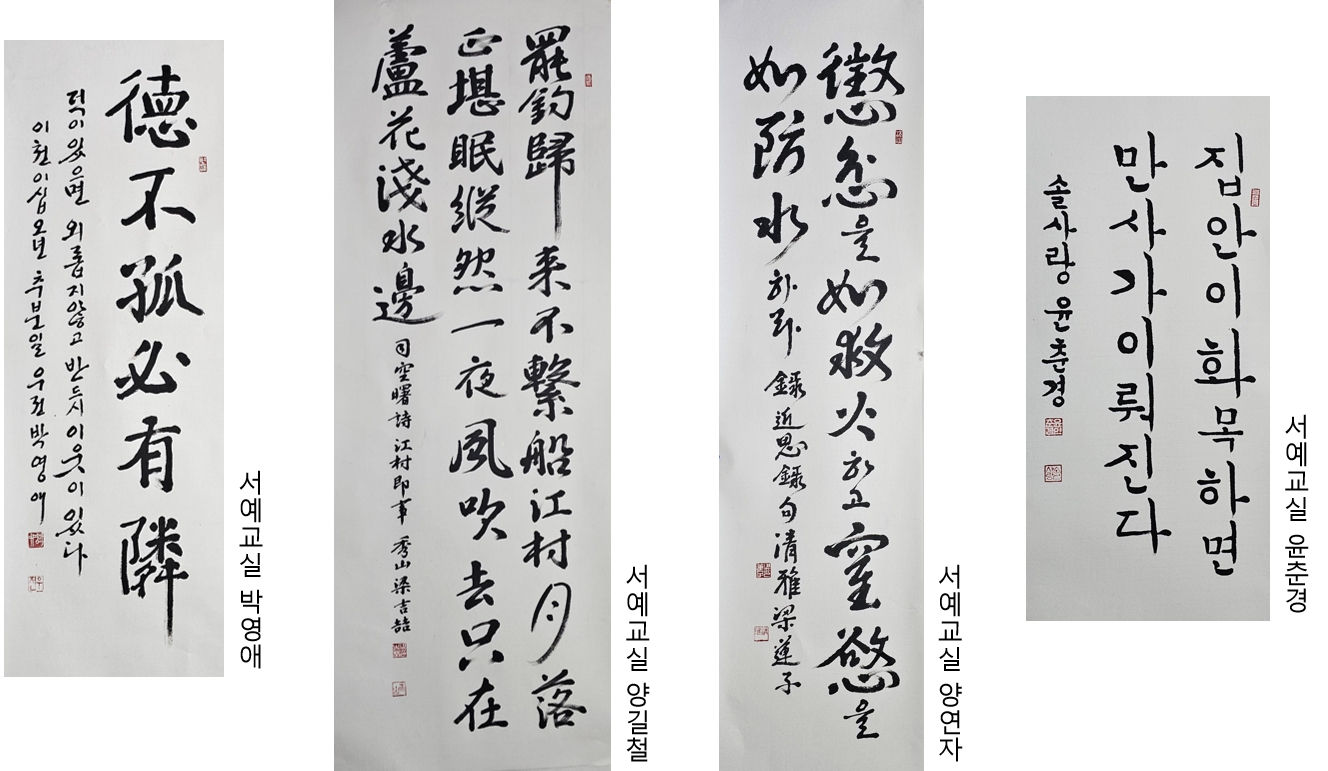 德不孤必有隣
덕이 있으면 외롭지않고 반드시 이웃이 있다
이천이십오년 추분일 우전 박영애
서예교실 박영애
罷釣歸来不繫船江村月落
正堪眠縱然一夜風吹去只在
蘆花淺水邊
司空曙詩 江村即事 秀山 梁吉喆
서예교실 양길철
懲忿을 如救火하고 窒慾을
如防水하라
錄近思錄句 清雅 梁蓮子
서예교실 양연자
집안이화목하면
만사가이뤄진다
솔사랑 윤춘경
서예교실 윤춘경